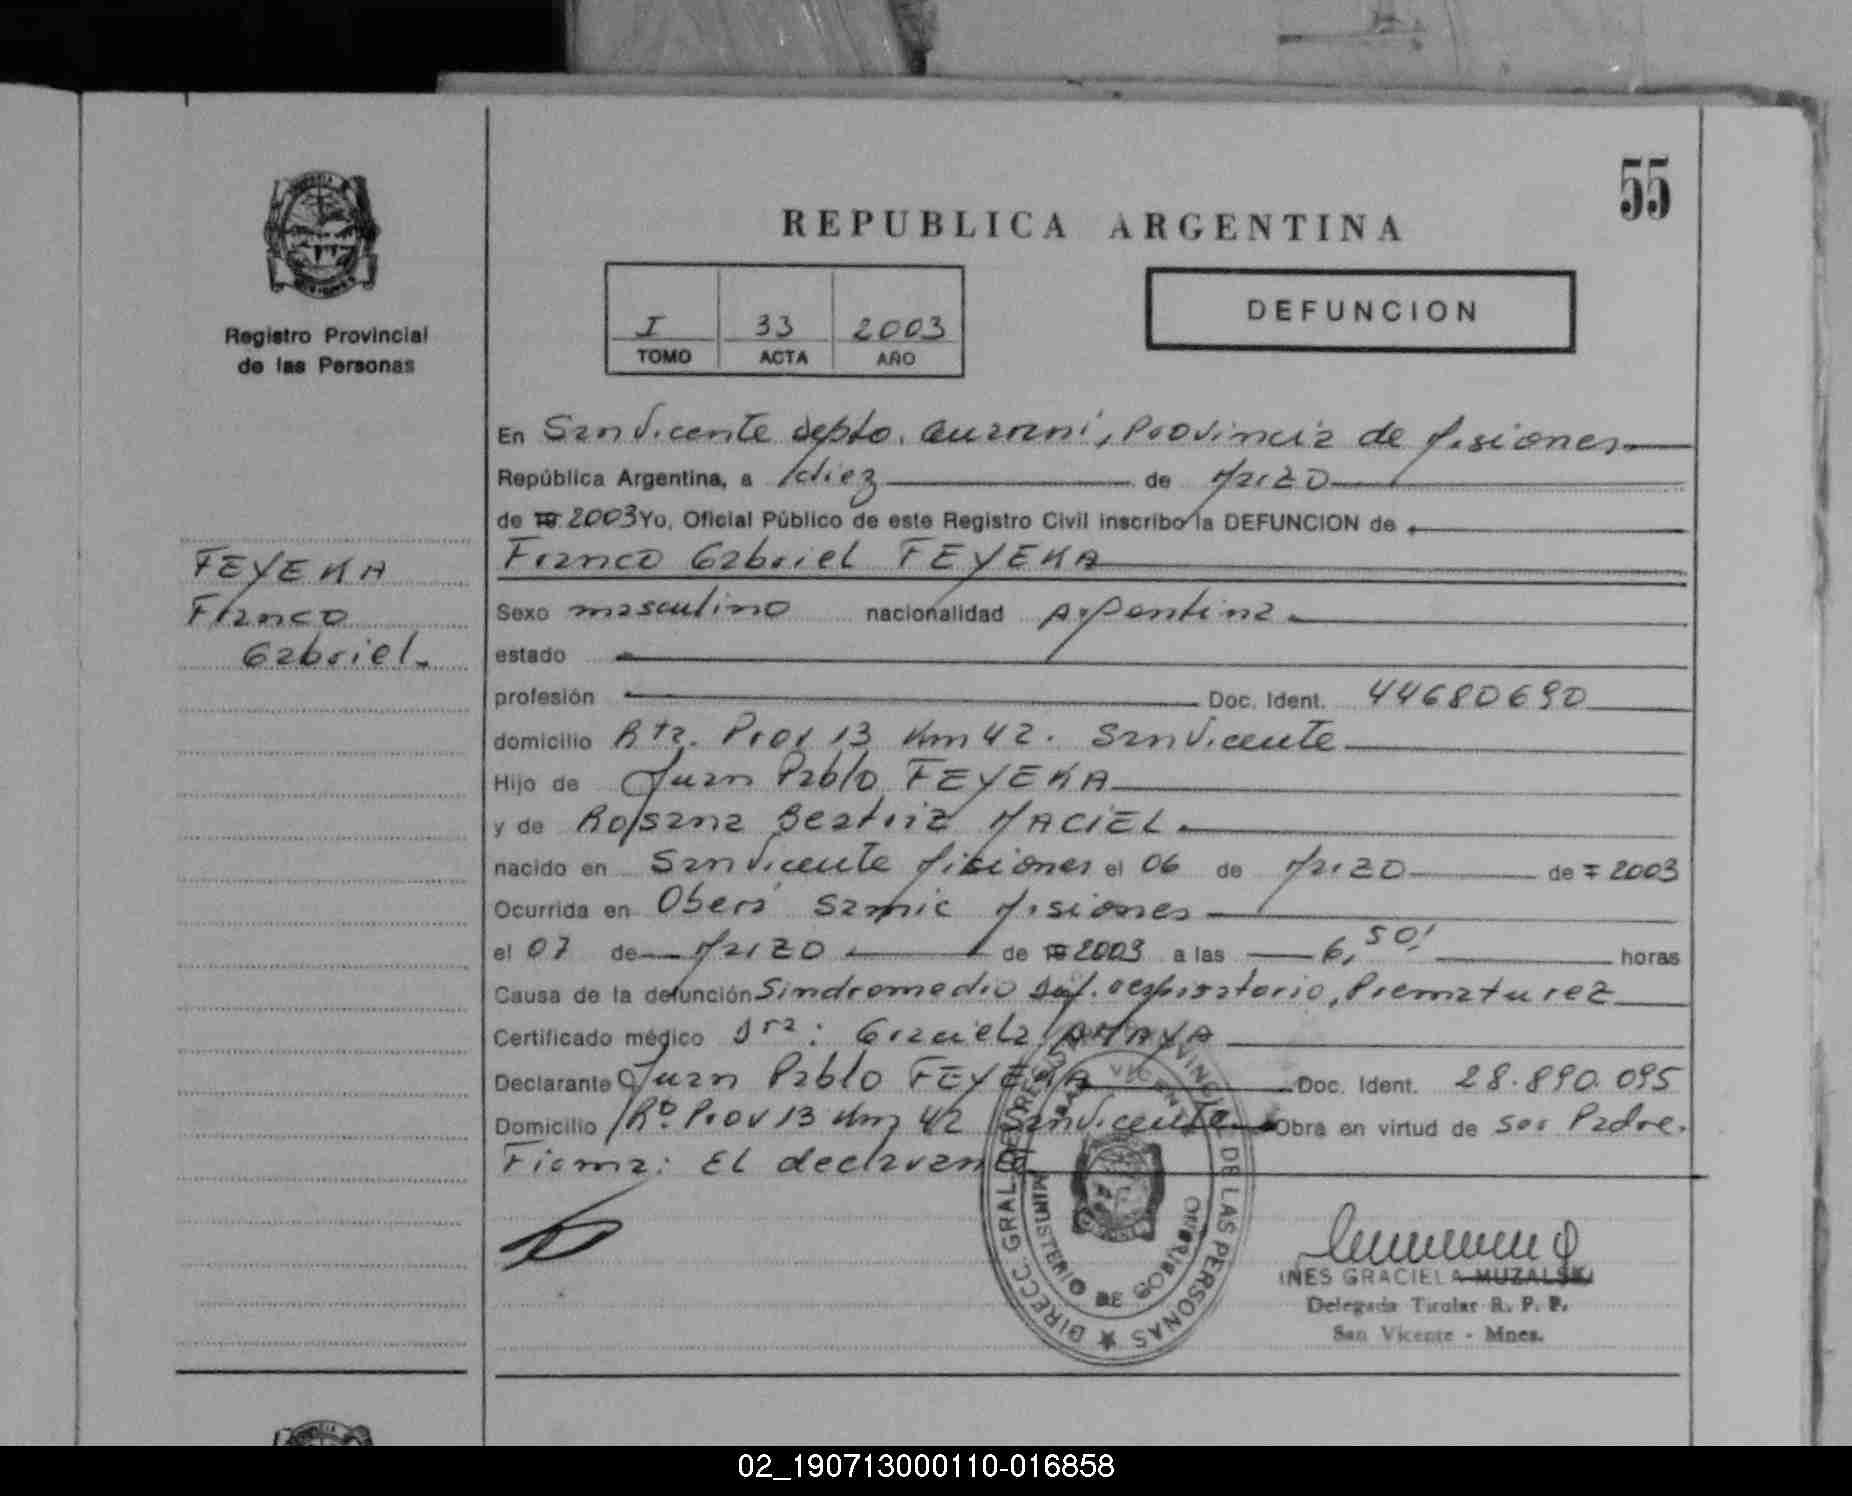 55
REPUBLICA ARGENTINA
Registro Provincial
de las Personas
I 33 2003
TOMO ACTA AÑO
DEFUNCION
FEYEKA
Franco
Gabriel.
En San Vicente depto. Guarani, Provincia de Misiones
República Argentina, a diez de Marzo
de 19 2003 Yo, Oficial Público de este Registro Civil inscribo la DEFUNCION de
Franco Gabriel FEYEKA
Sexo masculino nacionalidad Argentina
estado
profesión Doc. Ident. 44680690
domicilio Rta. Prov 13 Km 42. San Vicente
Hijo de Juan Pablo FEYEKA
y de Rosana Beatriz MACIEL
nacido en San Vicente Misiones el 06 de Marzo de 2003
Ocurrida en Oberá Samic Misiones
el 07 de Marzo de 19 2003 a las 6,50' horas
Causa de la defunción Sindrome dis respiratorio, Prematurez
Certificado médico Dra: Graciela AMAYA
Declarante Juan Pablo FEYEKA Doc. Ident. 28.890.095
Domicilio Rº. Prov 13 Km 42 San Vicente Obra en virtud de ser Padre.
Firma: El declarante
DIRECC. GRAL. DEL REGISTRO PROVINCIAL DE LAS PERSONAS
SAN VICENTE
MINISTERIO DE GOBIERNO
INES GRACIELA MUZALSKI
Delegada Titular R. P. P.
San Vicente - Mnes.
02_190713000110-016858